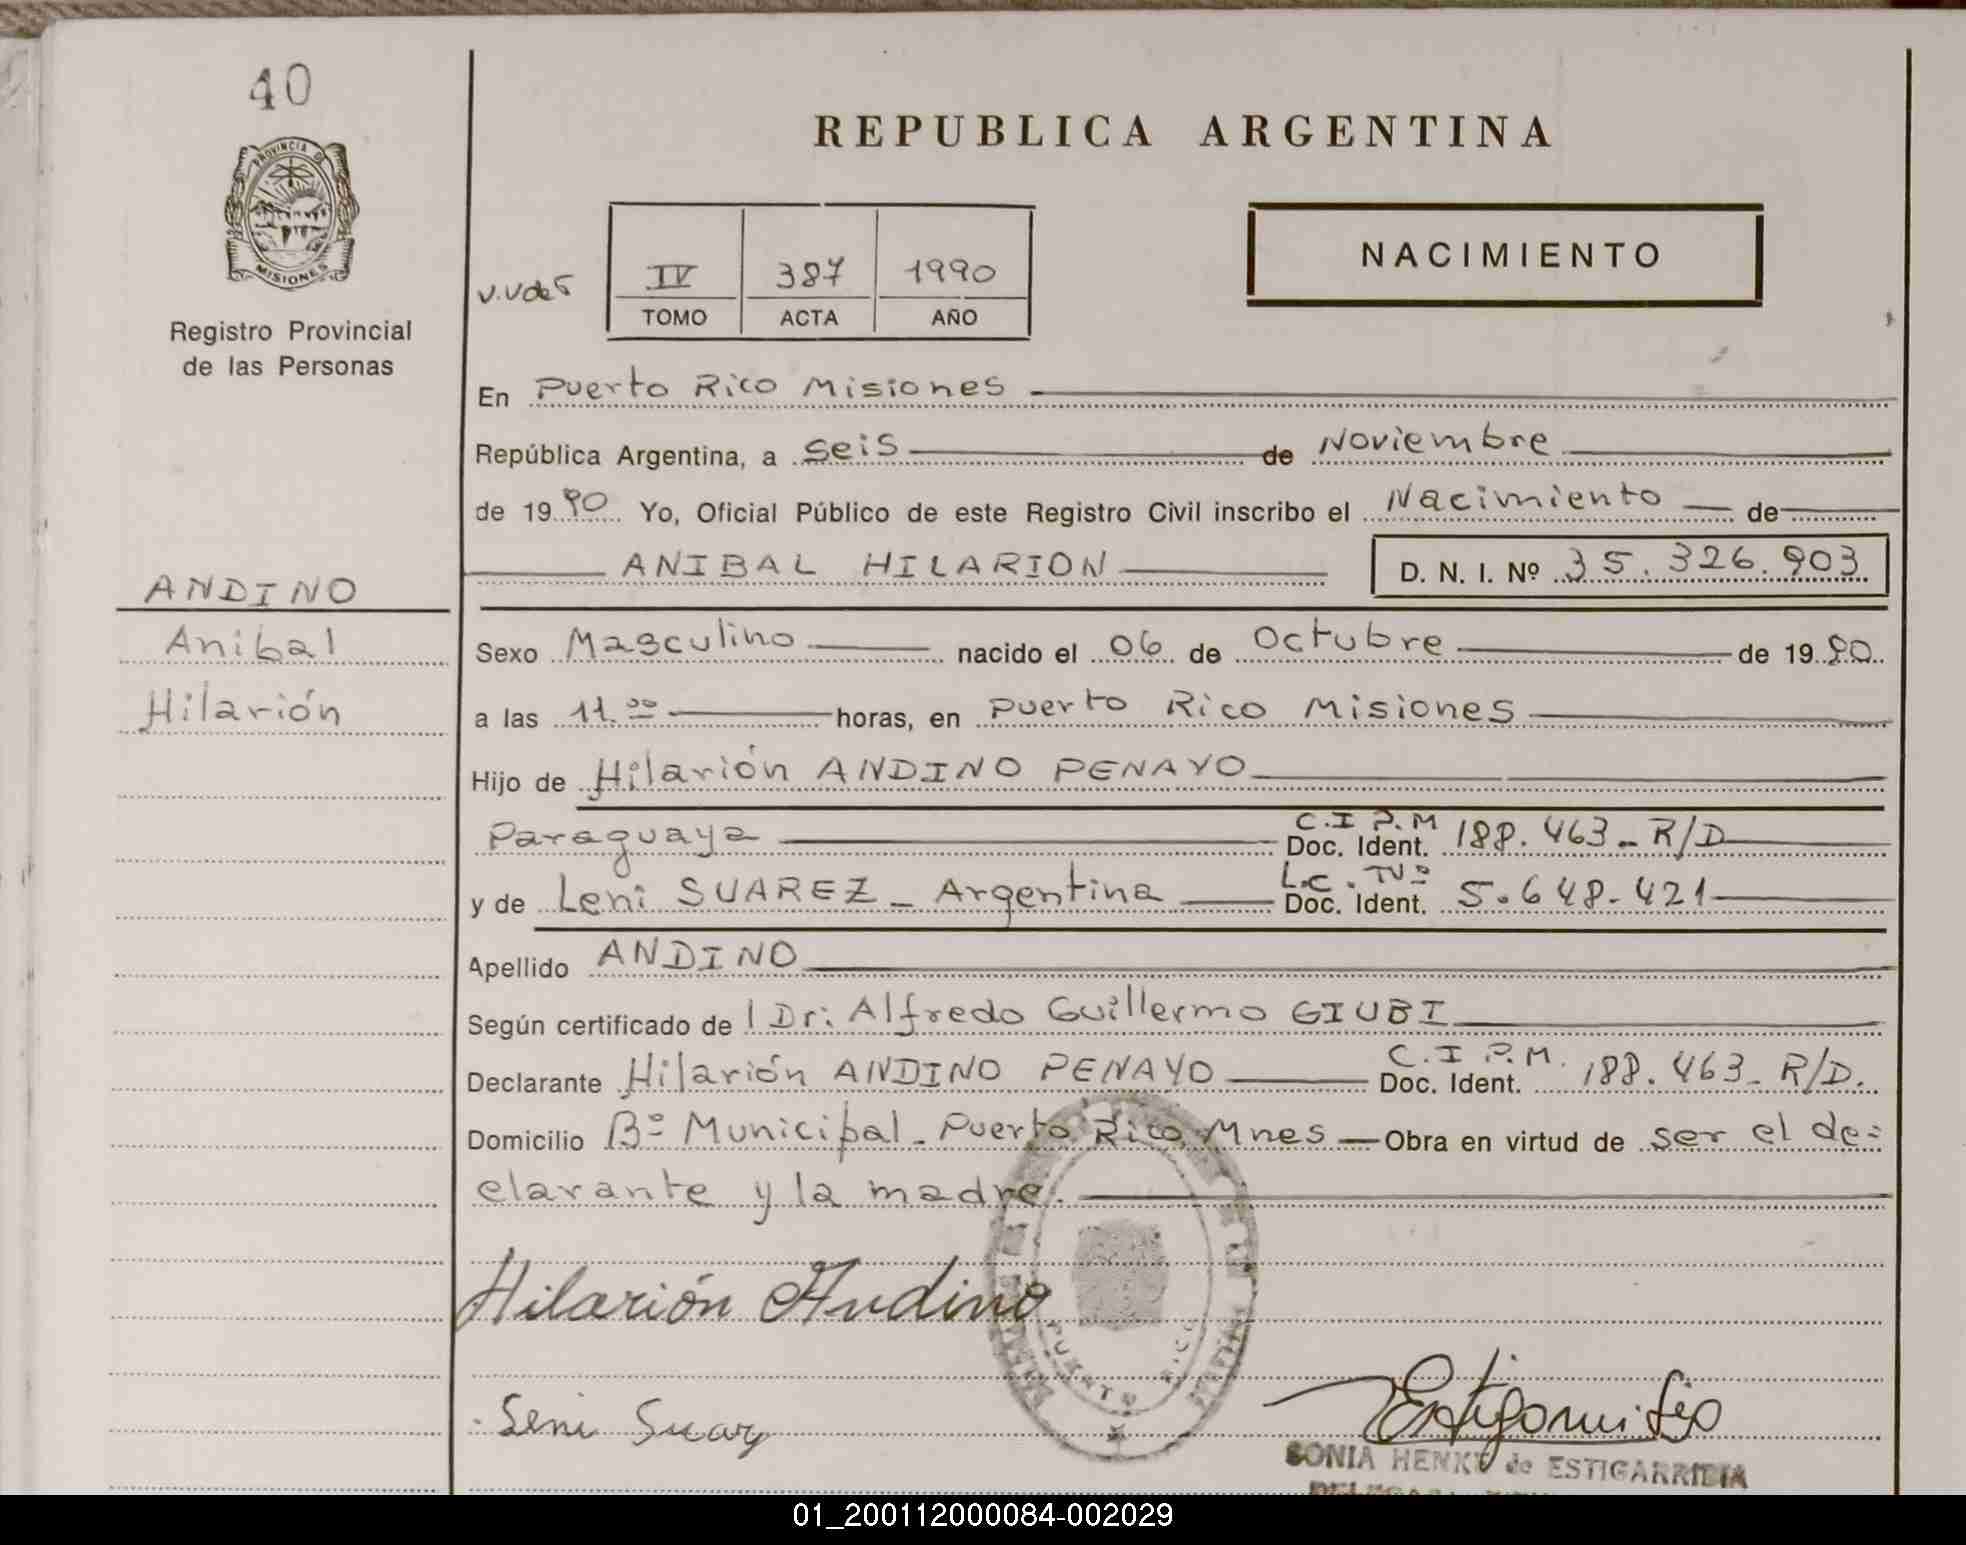 40
PROVINCIA DE
MISIONES
Registro Provincial
de las Personas
ANDINO
Anibal
Hilarión
REPUBLICA ARGENTINA
NACIMIENTO
IV 387 1990
TOMO ACTA AÑO
En Puerto Rico Misiones
República Argentina, a seis de Noviembre
de 1990 Yo, Oficial Público de este Registro Civil inscribo el Nacimiento de
ANIBAL HILARION D. N. I. Nº 35.326.903
Sexo Masculino nacido el 06 de Octubre de 1990
a las 11.00 horas, en Puerto Rico Misiones
Hijo de Hilarión ANDINO PENAYO
Paraguaya C.I P.M Doc. Ident. 188.463_ R/D
y de Leni SUAREZ _ Argentina L.C. Nº Doc. Ident. 5.648.421
Apellido ANDINO
Según certificado de Dr: Alfredo Guillermo GIUBI
Declarante Hilarión ANDINO PENAYO C.I P.M. Doc. Ident. 188.463_ R/D.
Domicilio Bº Municipal_ Puerto Rico Mnes Obra en virtud de ser el de=
clarante y la madre.
Hilarión Andino
PUERTO RICO
Leni Suarez
SONIA HENKE de ESTIGARRIBIA
01_200112000084-002029